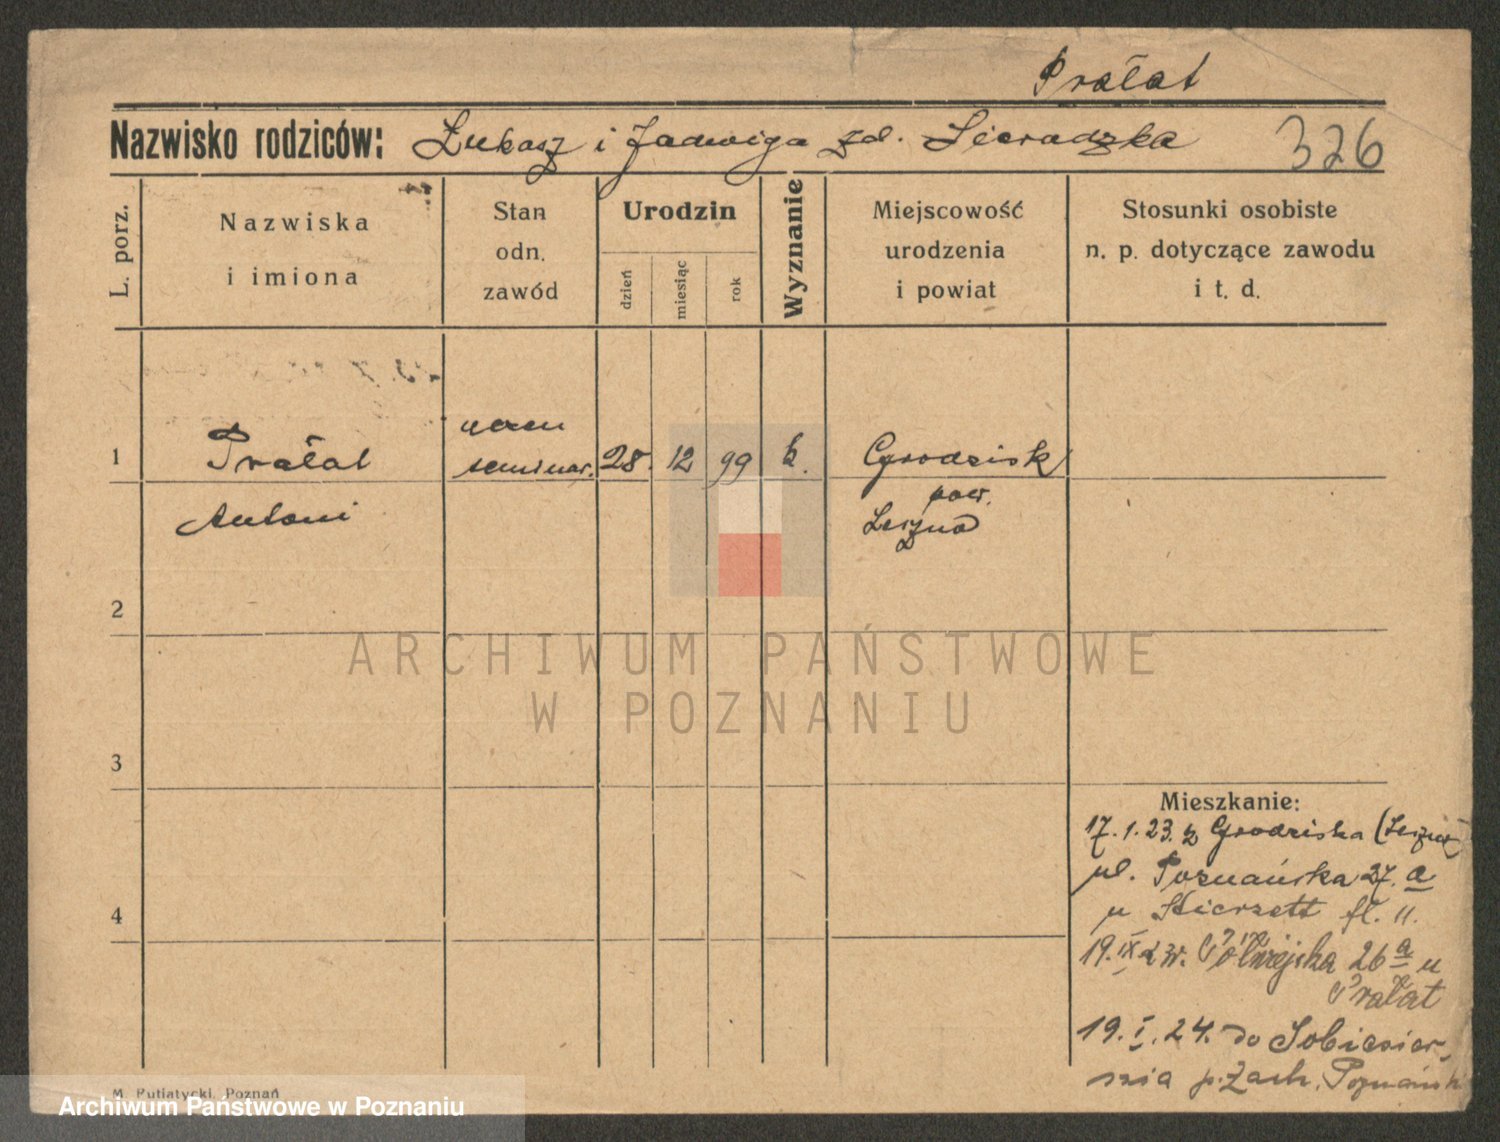 Prałat
Nazwisko rodziców: Łukasz i Jadwiga zd. Sieradzka 326
L. porz.
Nazwiska
i imiona
Stan
odn.
zawód
Urodzin
dzień
miesiąc
rok
Wyznanie
Miejscowość
urodzenia
i powiat
Stosunki osobiste
n. p. dotyczące zawodu
i t. d.
1 Prałat uczen seminar. 28. 12 99 k. Grodzisk
Antoni pow. Leszno
2
ARCHIWUM PAŃSTWOWE
W POZNANIU
3
4
Mieszkanie:
17.1.23. z Grodziska (Leszno)
ul. Poznańska 27. a
u
19. IX Półwiejska 26 a u
Prałat
19. I. 24. do
p. Zach. Poznański
M. Putiatycki, Poznań
Archiwum Państwowe w Poznaniu